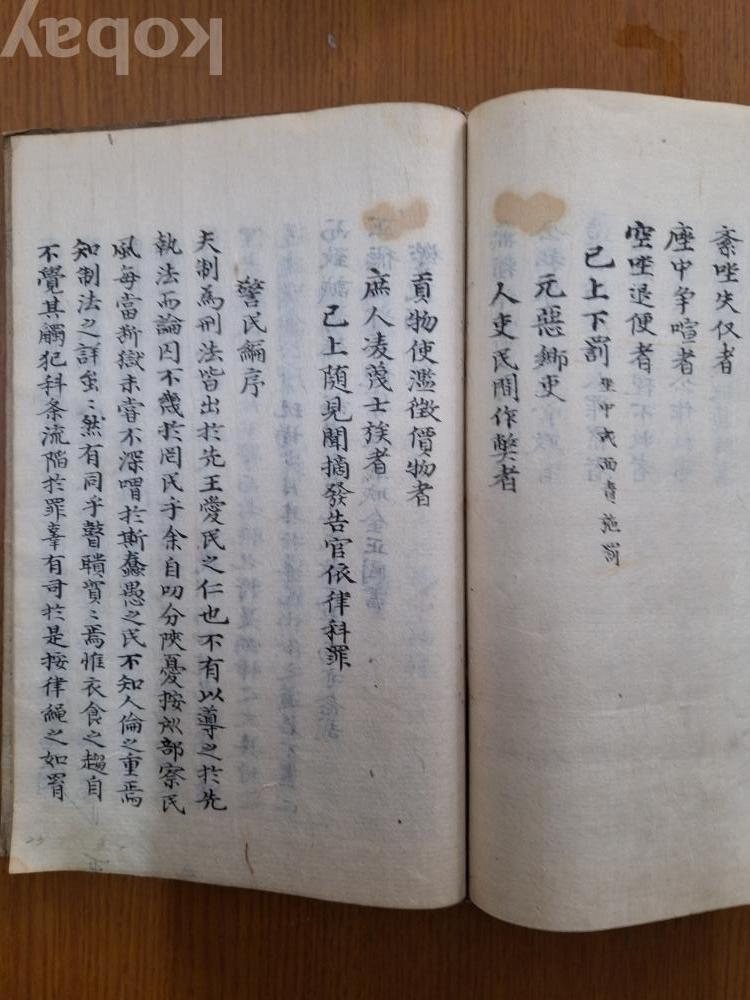 kobay
紊坐失仪者
座中争喧者
空坐退便者
已上下罰 衆中或面責施罰
元惡鄉吏
人吏民間作弊者
貢物使濫徵價物者
庶人凌蔑士族者
已上随見聞摘發告官依律科罪
警民編序
夫制為刑法皆出於先王愛民之仁也不有以導之於先
執法而論囚不幾於罔民乎余自叨分陝憂按郊部察民
風每當斷獄未嘗不深喟於斯蠢愚之民不知人倫之重焉
知制法之詳蚩〻然有同乎瞽聵貿〻焉惟衣食之趨自
不覺其觸犯科条流陷於罪辜有司於是按律繩之如罥